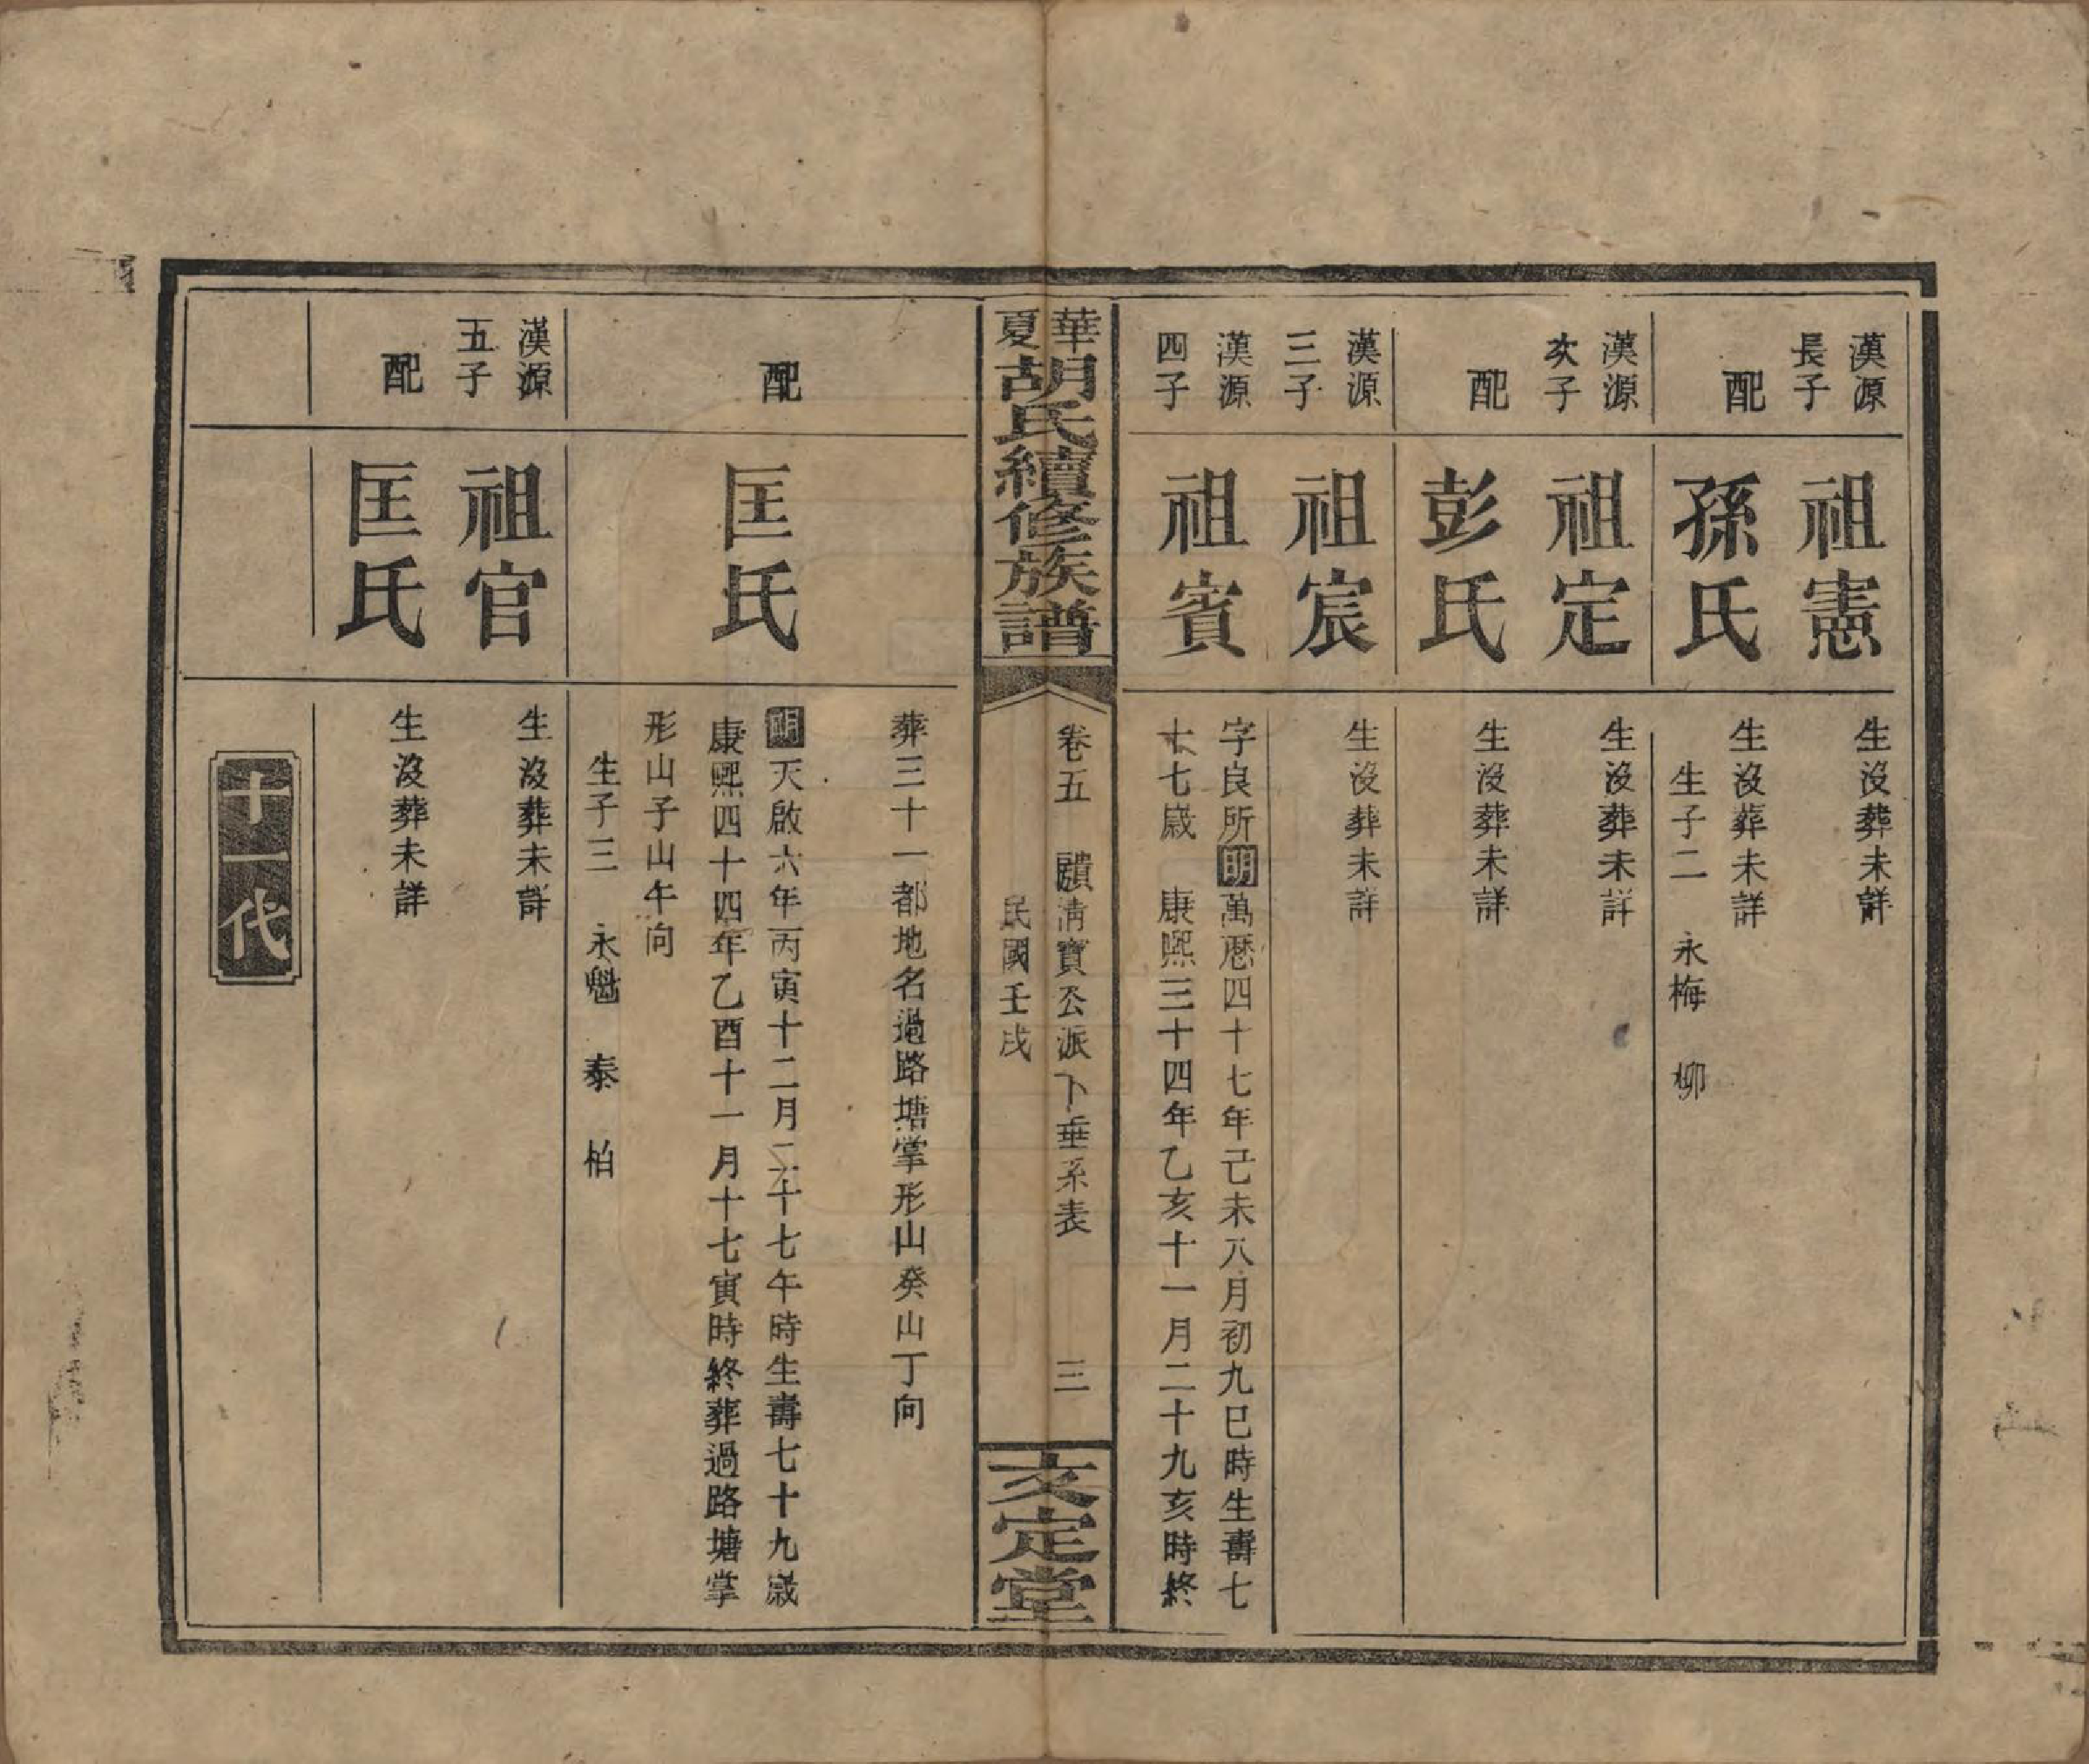 漢源
長子
祖憲
生沒葬未詳
配
孫氏
生沒葬未詳
生子二　永梅　柳
漢源
次子
祖定
生沒葬未詳
配
彭氏
生沒葬未詳
漢源
三子
祖宸
生沒葬未詳
漢源
四子
祖賓
字良所明萬曆四十七年己未八月初九巳時生壽七
十七歲　康熙三十四年乙亥十一月二十九亥時終
華夏胡氏續修族譜
卷五　清寶公派下垂系表　三
民國壬戌
文定堂
葬三十一都地名過路塘掌形山癸山丁向
配
匡氏
明天啟六年丙寅十二月二十七午時生壽七十九歲
康熙四十四年乙酉十一月十七寅時終葬過路塘掌
形山子山午向
生子三　永魁　泰　柏
漢源
五子
祖官
生沒葬未詳
配
匡氏
生沒葬未詳
十一代